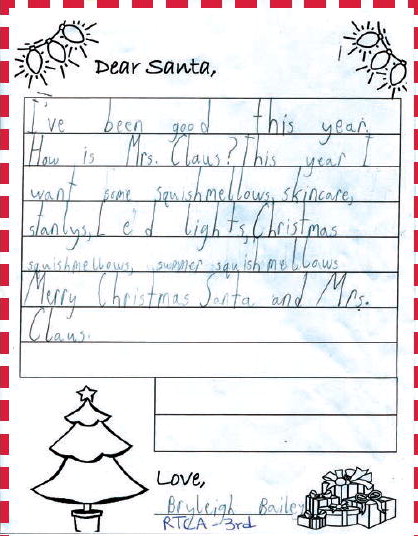 Dear Santa,
I've been good this year.
How is Mrs. Claus? This year I
want some squishmellows, skincare,
stanlys, L e'd lights, Christmas
squishmellows, summer squishmellows
Merry Christmas Santa and Mrs.
Claus.
Love,
Bryleigh Bailey
RTCA - 3rd